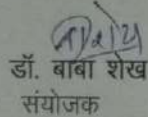 डॉ. बाबा शेख
संयोजक